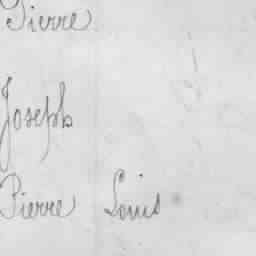 Pierre
Joseph
Pierre Louis